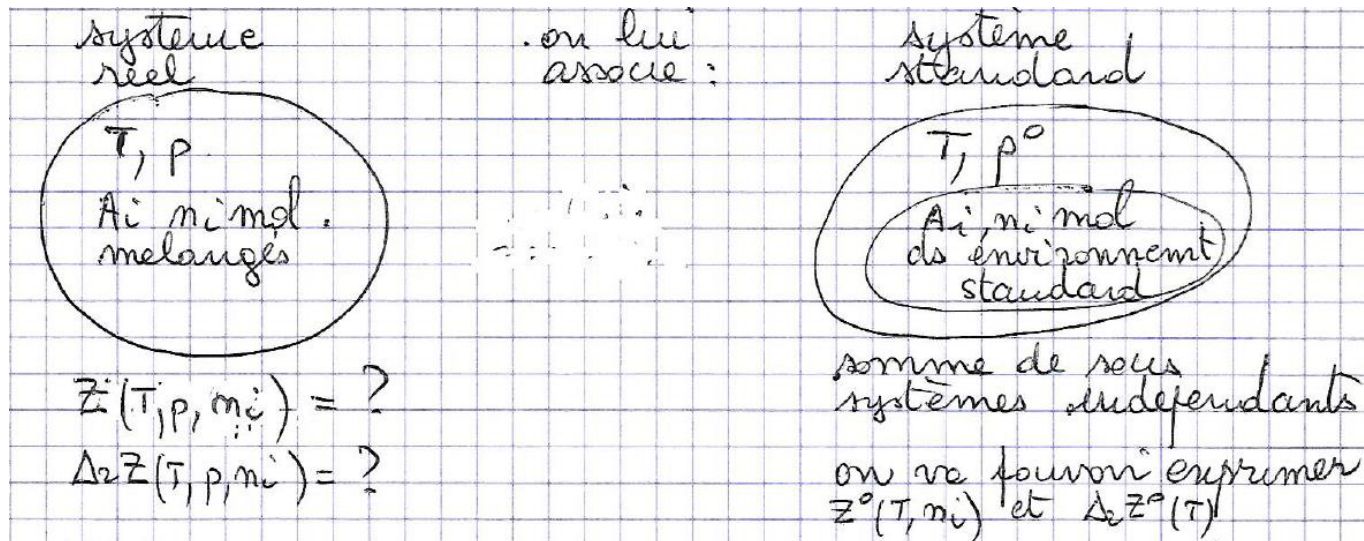 système
réel
T, p
Ai ni mol.
mélangés
Z(T, p, ni) = ?
ΔrZ(T, p, ni) = ?
on lui
associe :
système
standard
T, p°
Ai, ni mol
ds environnemt
standard
somme de sous
systèmes indépendants
on va pouvoir exprimer
Z°(T, ni) et ΔrZ°(T)